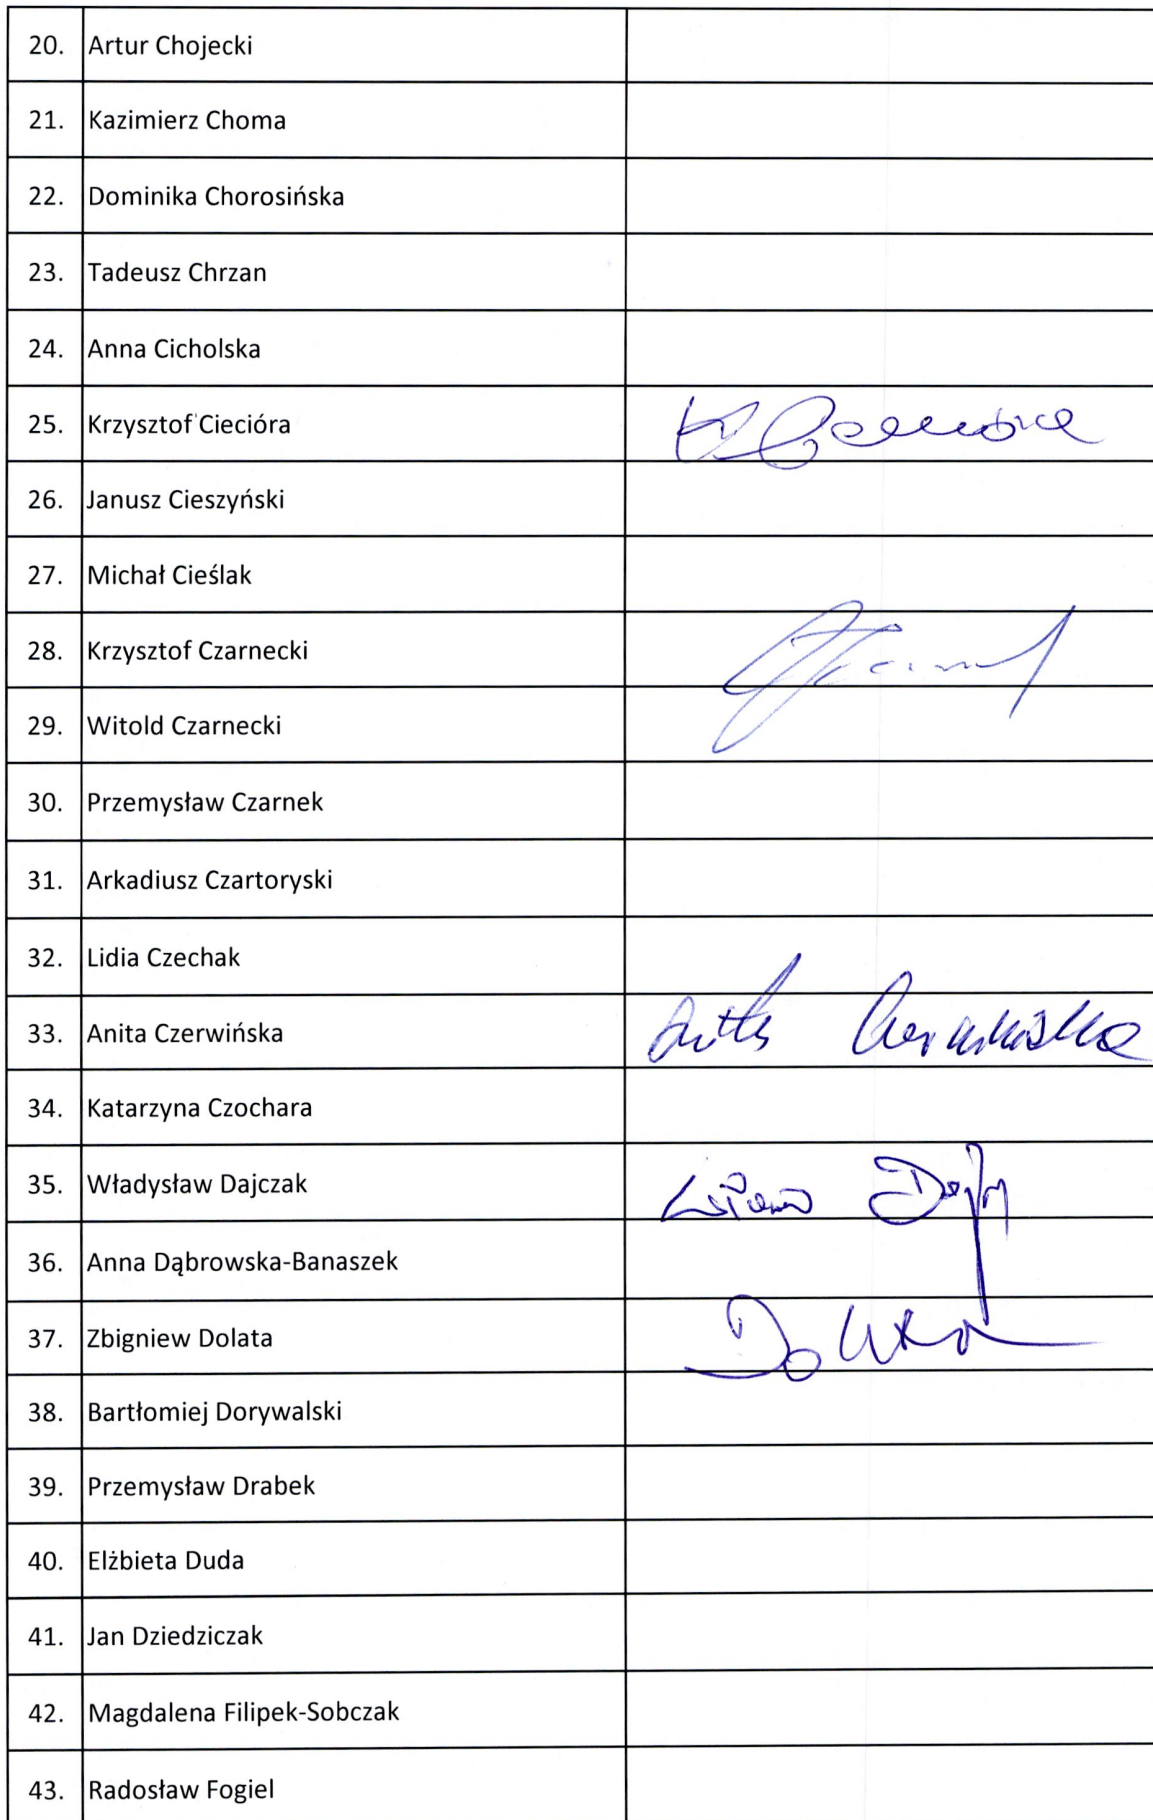 20. Artur Chojecki
21. Kazimierz Choma
22. Dominika Chorosińska
23. Tadeusz Chrzan
24. Anna Cicholska
25. Krzysztof Ciecióra
26. Janusz Cieszyński
27. Michał Cieślak
28. Krzysztof Czarnecki
29. Witold Czarnecki
30. Przemysław Czarnek
31. Arkadiusz Czartoryski
32. Lidia Czechak
33. Anita Czerwińska
34. Katarzyna Czochara
35. Władysław Dajczak
36. Anna Dąbrowska-Banaszek
37. Zbigniew Dolata
38. Bartłomiej Dorywalski
39. Przemysław Drabek
40. Elżbieta Duda
41. Jan Dziedziczak
42. Magdalena Filipek-Sobczak
43. Radosław Fogiel